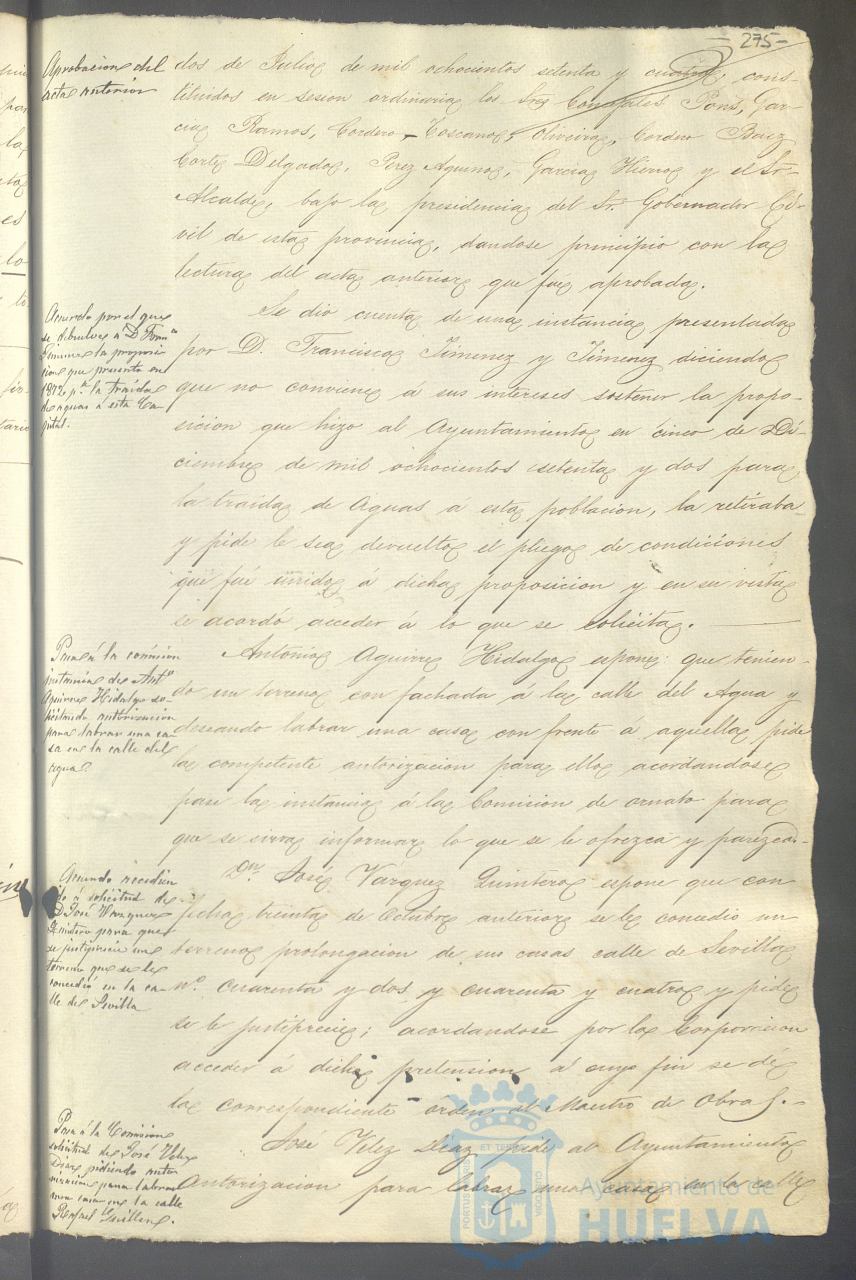 -275-
Aprobacion del
acta anterior
dos de Julio de mil ochocientos setenta y cuatro, cons-
tituidos en sesion ordinaria los Sres Concejales Pons, Gar-
cia Ramos, Cordero, Toscano, Oliveira, Cordero Baez,
Corte Delgado, Perez Aquino, Garcia Hierro y el Sr.
Alcalde, bajo la presidencia del Sr. Gobernador Ci-
vil de esta provincia, dandose principio con la
lectura del acta anterior que fué aprobada.
Acuerdo por el que
se debuelve á D. Franco
Jimenez la proposi-
cion que presentó en
1872 pa. la traida
de aguas á esta Ca-
pital.
Se dió cuenta de una instancia presentada
por D. Francisco Jimenez y Jimenez diciendo
que no conviene á sus intereses sostener la propo-
sicion que hizo al Ayuntamiento en cinco de Di-
ciembre de mil ochocientos setenta y dos para
la traida de Aguas á esta poblacion, la retiraba
y pide le sea devuelto el pliego de condiciones
que fué unido á dicha proposicion y en su vista
se acordó acceder á lo que se solicita.
Pase á la comision
instancia de Anto
Aguirre Hidalgo so-
licitando autorizacion
para labrar una ca-
sa en la calle del
agua.
Antonio Aguirre Hidalgo espone: que tenien-
do un terreno con fachada á la calle del Agua y
deseando labrar una casa con frente á aquella pide
la competente autorizacion para ello acordandose
pase la instancia á la Comision de ornato para
que se sirva informar lo que se le ofrezca y parezca.
Acuerdo accedien
do á solicitud de
D. José Vazquez
Quintero para que
se justiprecie un
terreno que se le
concedió en la ca-
lle de Sevilla
Dn. José Vazquez Quintero espone que con
fecha treinta de Octubre anterior se le concedió un
terreno prolongacion de sus casas calle de Sevilla
no. cuarenta y dos y cuarenta y cuatro y pide
se le justiprecie; acordandose por la Corporacion
acceder á dicha pretension á cuyo fin se dé
la correspondiente órden al Maestro de Obras.
Pasa á la Comision
solicitud de José Velez
Diaz pidiendo auto
rizacion para labrar
una casa en la calle
Rafael Guillen.
José Velez Diaz pide al Ayuntamiento
autorizacion para labrar una casa en la calle
Ayuntamiento de
HUELVA